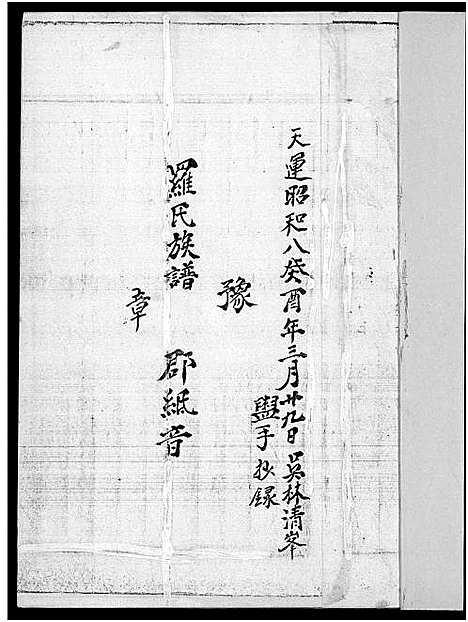 天運昭和八癸酉年三月廿九日吳林清峯
盥手抄録
豫
羅氏族譜 郡紙音
章